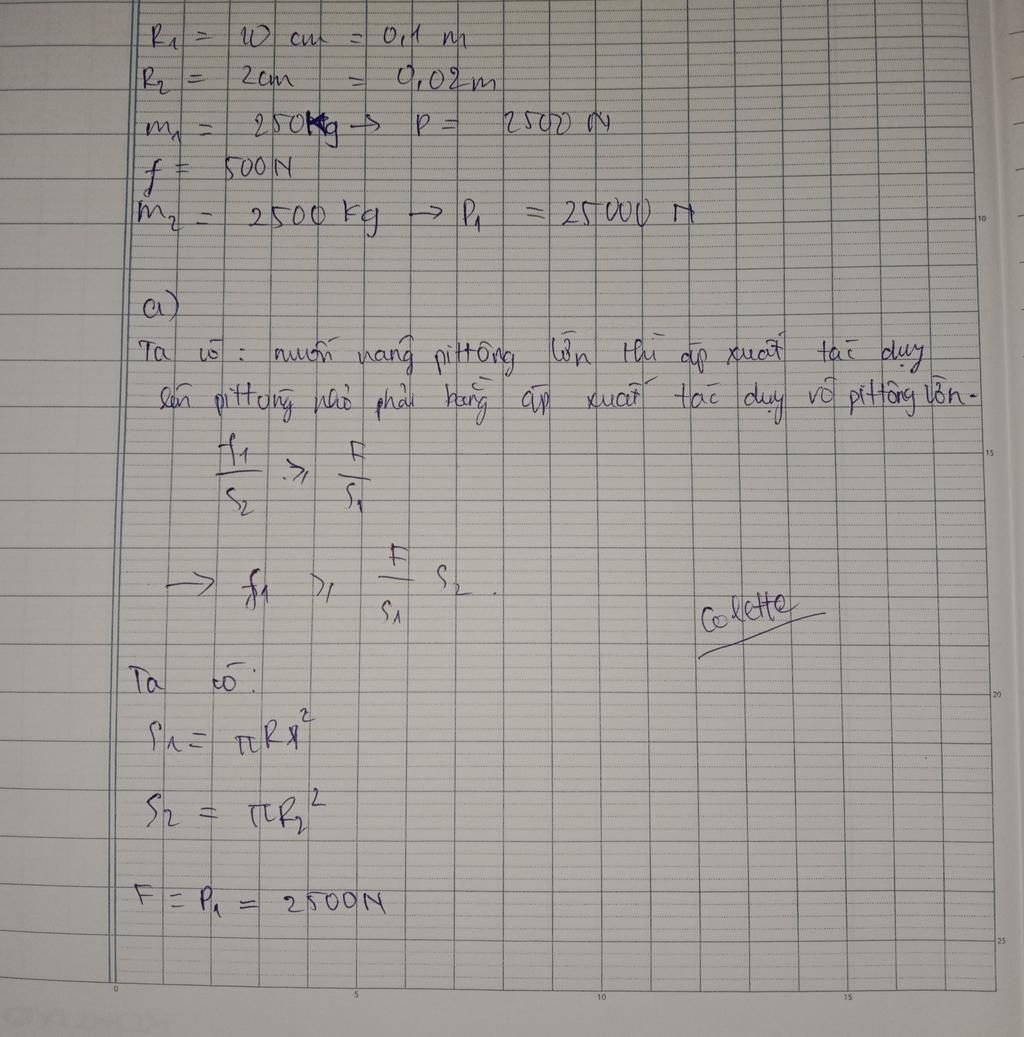 R₁ = 10 cm = 0,1 m
R₂ = 2cm = 0,02m
m₁ = 250Kg → P = 2500 N
f = 500N
m₂ = 2500 Kg → P₁ = 25000 N
a)
Ta có : muốn nâng pittông lớn thì áp xuất tác dụng
lên pittông nhỏ phải bằng áp xuất tác dụng vô pittông lớn.
f₁/S₂ ≥ F/S₁
→ f₁ ≥ F/S₁ S₂.
Colette
Ta có:
S₁ = πR₁²
S₂ = πR₂²
F = P₁ = 2500N
10
15
20
25
0 5 10 15